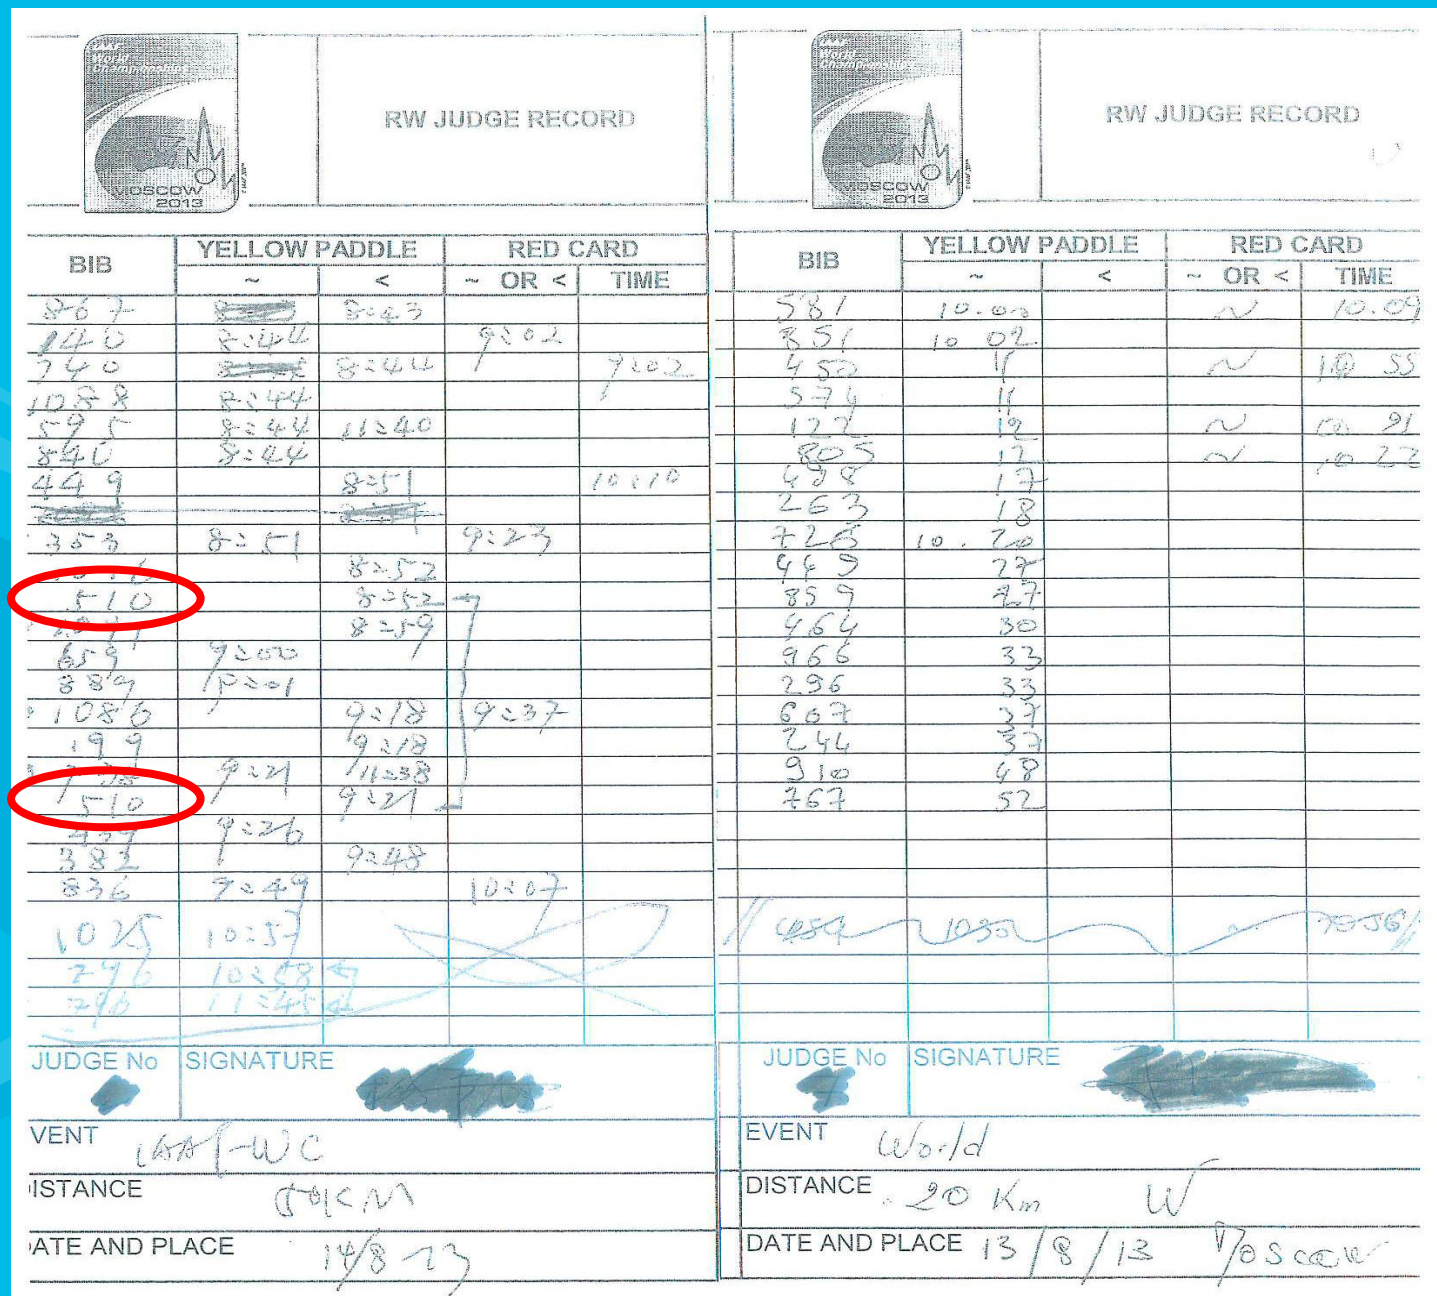 IAAF
World
Championships
MOSCOW
2013
RW JUDGE RECORD
BIB
YELLOW PADDLE
RED CARD
~ < ~ OR < TIME
867 8:43
140 8:44 9:02
740 8:44 9:02
1088 8:44
595 8:44 11:40
840 8:44
449 8:51 10:10
353 8:51 9:23
8:52
510 8:52
8:59
659 9:00
889 9:01
1086 9:18 9:37
199 9:18
9:21 11:38
510 9:21
9:26
382 9:48
836 9:49 10:07
1025 10:57
796 10:58
796 11:45
JUDGE No SIGNATURE
VENT IAAF-WC
ISTANCE 50KM
ATE AND PLACE 14/8-13
IAAF
World
Championships
MOSCOW
2013
RW JUDGE RECORD
BIB
YELLOW PADDLE
RED CARD
~ < ~ OR < TIME
581 10.00 ~ 10.09
851 10 02
450 11 ~ 10 55
574 11
122 12 ~
805 12 ~ 10 22
498 17
263 18
726 10. 20
449 27
859 27
464 30
966 33
296 33
607 37
244 37
910 48
767 52
JUDGE No SIGNATURE
EVENT World
DISTANCE 20 Km W
DATE AND PLACE 13/8/13 Moscow